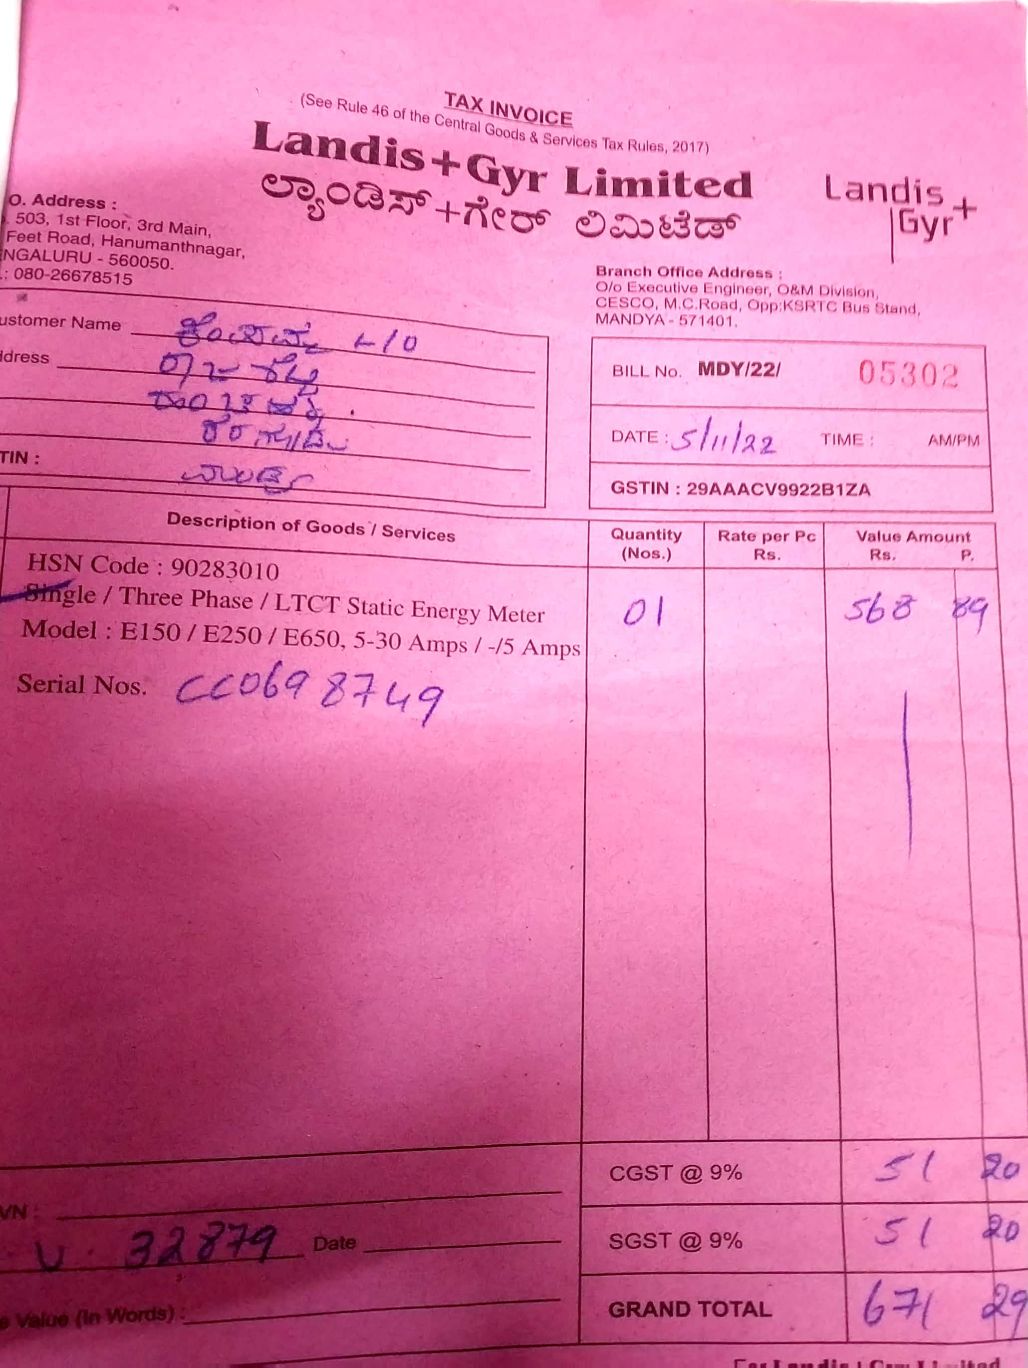 TAX INVOICE
(See Rule 46 of the Central Goods & Services Tax Rules, 2017)
Landis+Gyr Limited
ಲ್ಯಾಂಡಿಸ್+ಗೇರ್ ಲಿಮಿಟೆಡ್
Landis+
Gyr
O. Address :
503, 1st Floor, 3rd Main,
Feet Road, Hanumanthnagar,
NGALURU - 560050.
: 080-26678515
Branch Office Address :
O/o Executive Engineer, O&M Division,
CESCO, M.C.Road, Opp:KSRTC Bus Stand,
MANDYA - 571401.
ustomer Name
ddress
TIN :
BILL No. MDY/22/ 05302
DATE : 5/11/22 TIME : AM/PM
GSTIN : 29AAACV9922B1ZA
Description of Goods / Services Quantity (Nos.) Rate per Pc Rs. Value Amount Rs. P.
HSN Code : 90283010
Single / Three Phase / LTCT Static Energy Meter 01 568 89
Model : E150 / E250 / E650, 5-30 Amps / -/5 Amps
Serial Nos. CC0698749
CGST @ 9% 51 20
VN :
SGST @ 9% 51 20
32879 Date
GRAND TOTAL 671 29
Value (In Words) :
For Landis+Gyr Limited